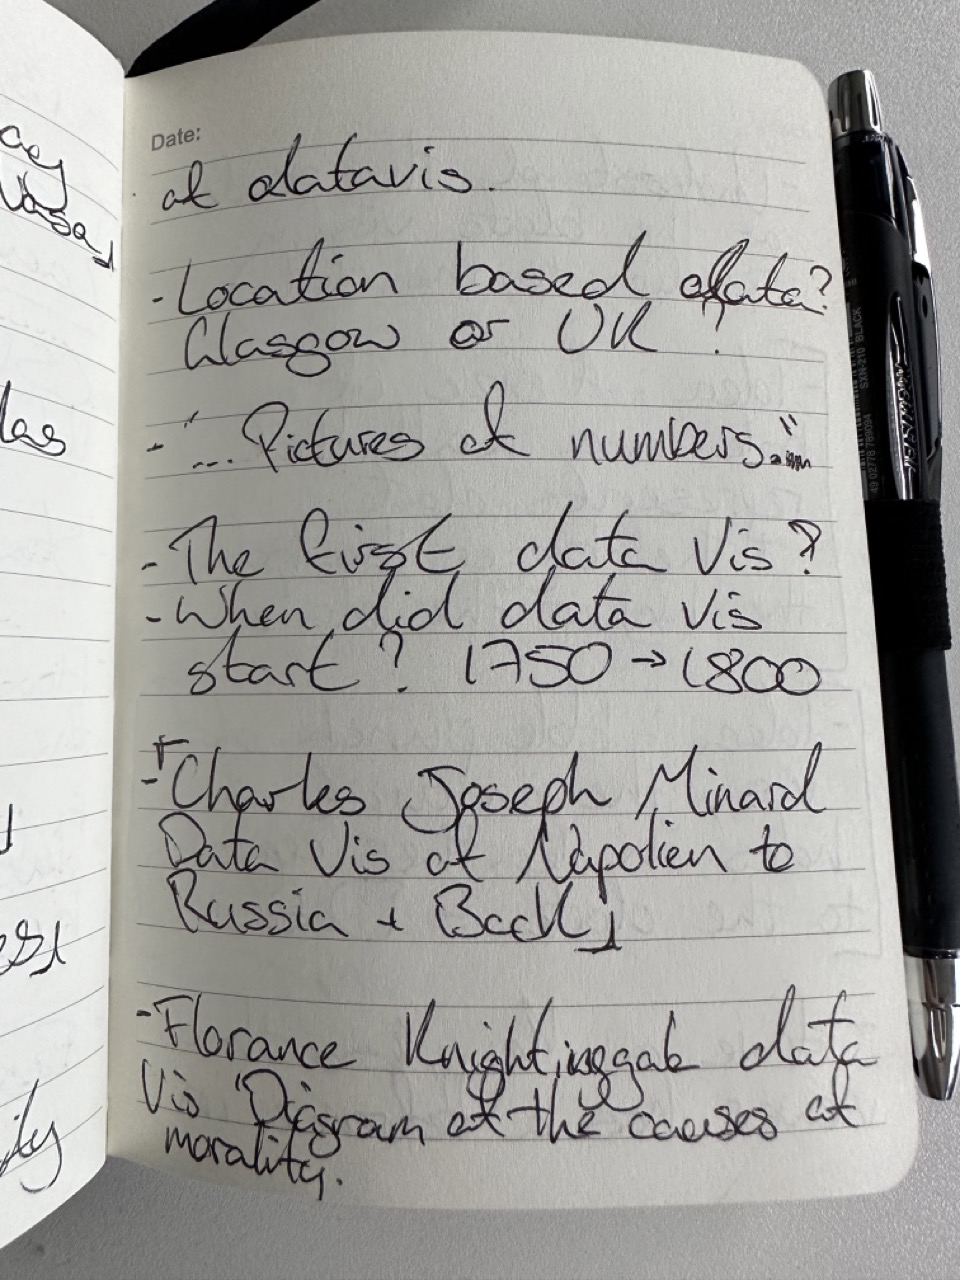 Date:
of datavis.
- Location based data?
Glasgow or UK?
- "... Pictures of numbers."
- The first data Vis?
- When did data vis
start? 1750 → 1800
- Charles Joseph Minard
Data Vis of Napolien to
Russia + Back
- Florance Knightinggale data
Vis 'Diagram of the causes of
morality.
las
ily
SXN-210 BLACK
49 02778 789094
JETSTREAM